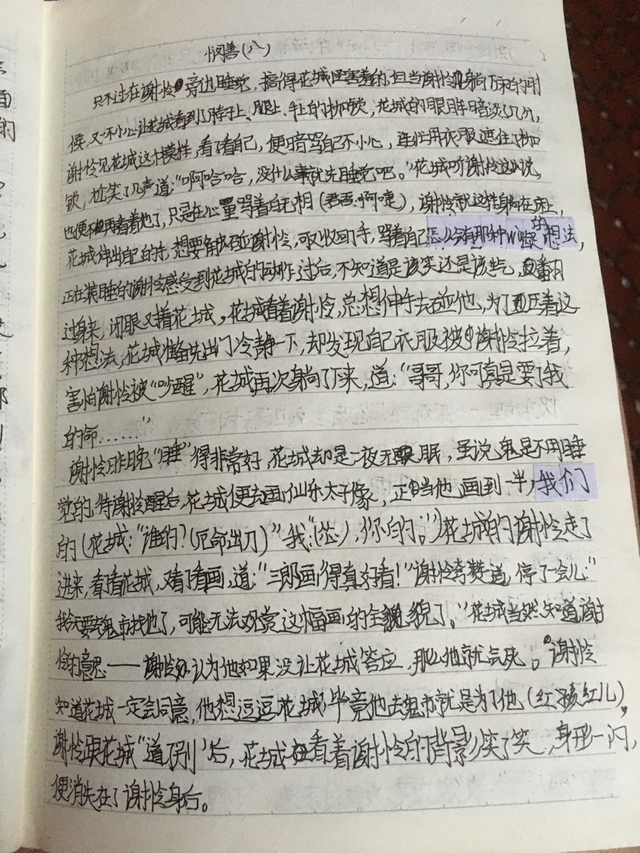 悯善(八)
只不过在谢怜旁边睡觉，搞得花城还害羞的,但当谢怜躺下来的时
候，又不小心让花城看到了脖子上、腿上、手上的枷锁，花城的眼眸暗淡了几分，
谢怜见花城这个模样，看了看自己，便暗骂自己不小心，连忙用衣服遮住了枷
锁，尬笑了几声道:"啊哈哈，没什么事就先睡觉吧。"花城听谢怜这么说，
也便不再看着他了，只是在心里骂着白无相(君吾:啊嚏)，谢怜就这样躺在床上，
花城伸出自己的手，想要触碰谢怜，可又收回了手，骂着自己怎么会有那种的想法，
正在装睡的谢怜感受到花城的动作过后，不知道是该笑还是该气，翻
过身来，闭眼对着花城，花城看着谢怜，总想伸手去碰他，为了压着这
种想法，花城准备出门冷静一下，却发现自己衣服被谢怜拉着，
害怕谢怜被"吵醒"，花城再次躺了下来，道："哥哥，你可真是要了我
的命……"
谢怜昨晚"睡"得非常好，花城却是一夜无眠，虽说鬼是不用睡
觉的，待谢怜醒后，花城便去画仙乐太子像，正当他画到一半，我们
的(花城:"谁的?(厄命出刀)"我:"(怂)，你的。")花城的谢怜走了
进来，看着花城，又看了看画，道:"三郎画得真好看!"谢怜夸赞道，停了会儿:"
我今天要去鬼市找他了，可能无法观赏这幅画的全貌了。"花城当然知道谢
怜的意思——谢怜认为他如果没让花城答应，那么他就气死。谢怜
知道花城一定会同意，他想逗逗花城，毕竟他去鬼市就是为了他(红红儿)，
谢怜跟花城"道了别"后，花城看着谢怜的背影笑了笑，身形一闪，
便消失在了谢怜身后。